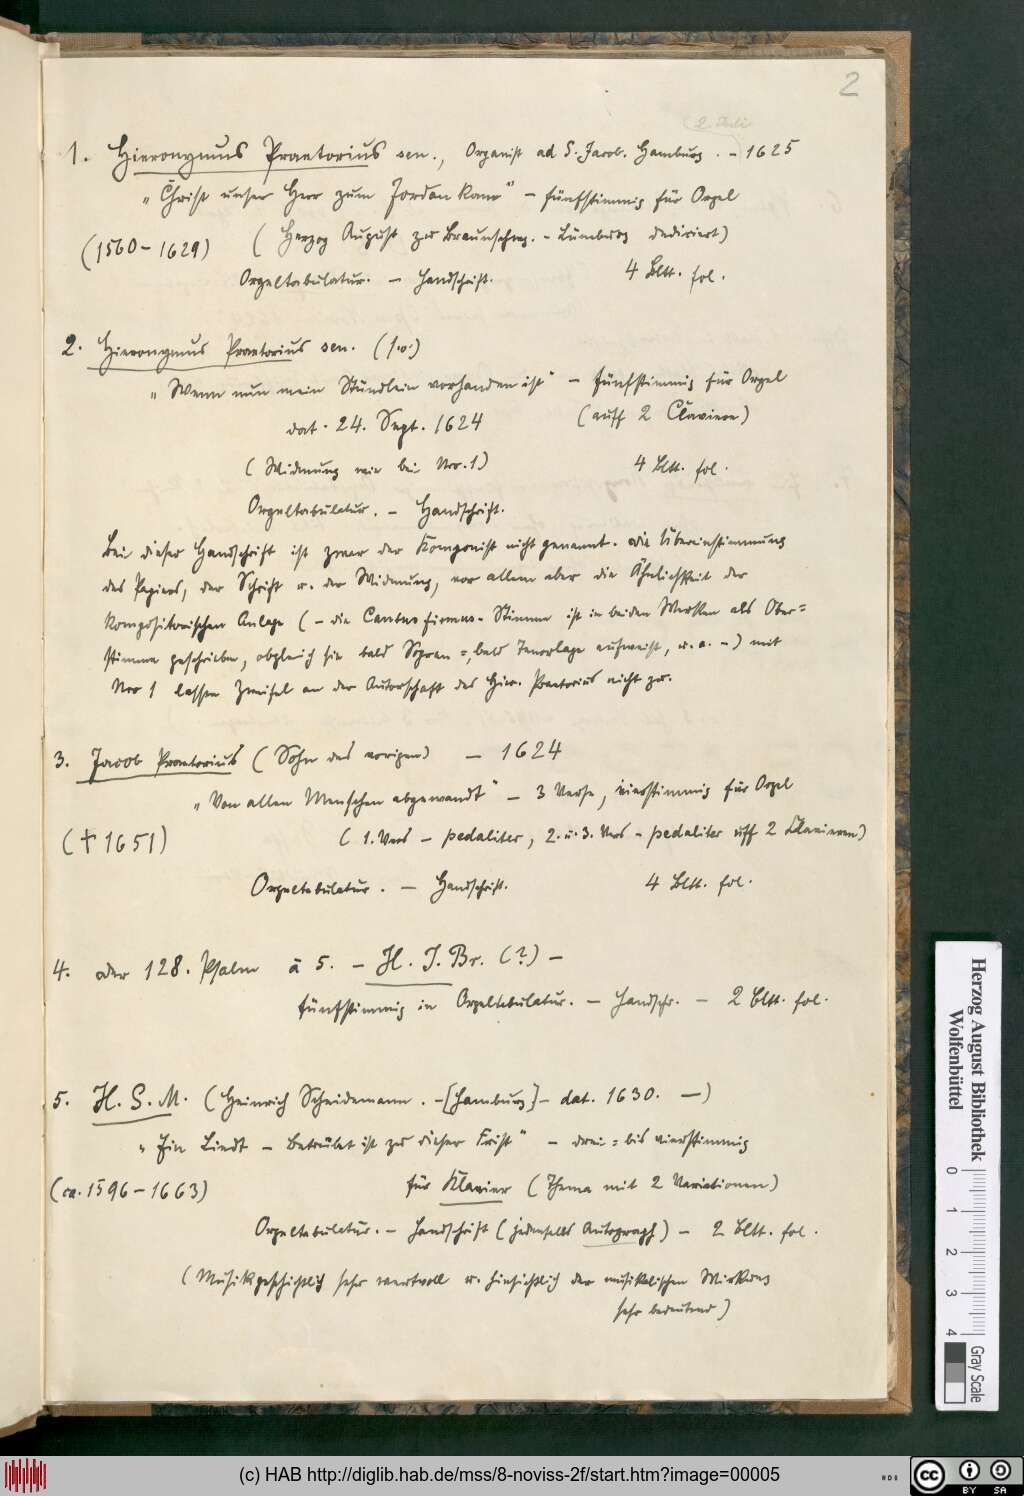 2
1. Hieronymus Praetorius sen., Organist ad S. Jacob. Hamburg. - 1625
„Christ unser Herr zum Jordan kam" - fünfstimmig für Orgel
(1560-1629) (Herzog August zu Braunschwg. - Lüneburg dediciert)
Orgeltabulatur. - Handschrift. 4 Bltt. fol.
2. Hieronymus Praetorius sen. (s.o.)
„Wenn nun mein Stündlein vorhanden ist" - fünfstimmig für Orgel
dat. 24. Sept. 1624 (auff 2 Claviere)
(Widmung wie bei Nro. 1) 4 Bltt. fol.
Orgeltabulatur. - Handschrift.
Bei dieser Handschrift ist zwar der Komponist nicht genannt. Die Übereinstimmung
des Papiers, der Schrift u. der Widmung, vor allem aber die Ähnlichkeit der
kompositorischen Anlage (- die Cantus firmus-Stimme ist in beiden Werken als Ober=
stimme geschrieben, obgleich sie bald Sopran=, bald Tenorlage aufweist, u.a. -) mit
Nro 1 lassen Zweifel an der Autorschaft des Hier. Praetorius nicht zu.
3. Jacob Praetorius (Sohn des vorigen) - 1624
„Von allen Menschen abgewandt" - 3 Verse, vierstimmig für Orgel
(† 1651) (1. Vers - pedaliter, 2. u. 3. Vers - pedaliter uff 2 Clavieren)
Orgeltabulatur. - Handschrift. 4 Bltt. fol.
4. oder 128. Psalm à 5. - H. J. Br. (?) -
fünfstimmig in Orgeltabulatur. - Handschr. - 2 Bltt. fol.
5. H. S. M. (Heinrich Scheidemann. -[Hamburg]- dat. 1630. -)
„Ein Liedt - Betrübet ist zu dieser Frist" - drei= bis vierstimmig
(ca. 1596-1663) für Klavier (Thema mit 2 Variationen)
Orgeltabulatur. - Handschrift (jedenfalls Autograph) - 2 Bltt. fol.
(Musikgeschichtlich sehr wertvoll u. hinsichtlich der musikalischen Wirkung
sehr bedeutend)
Herzog August Bibliothek
Wolfenbüttel
0 1 2 3 4
Gray Scale
(c) HAB http://diglib.hab.de/mss/8-noviss-2f/start.htm?image=00005
cc BY SA